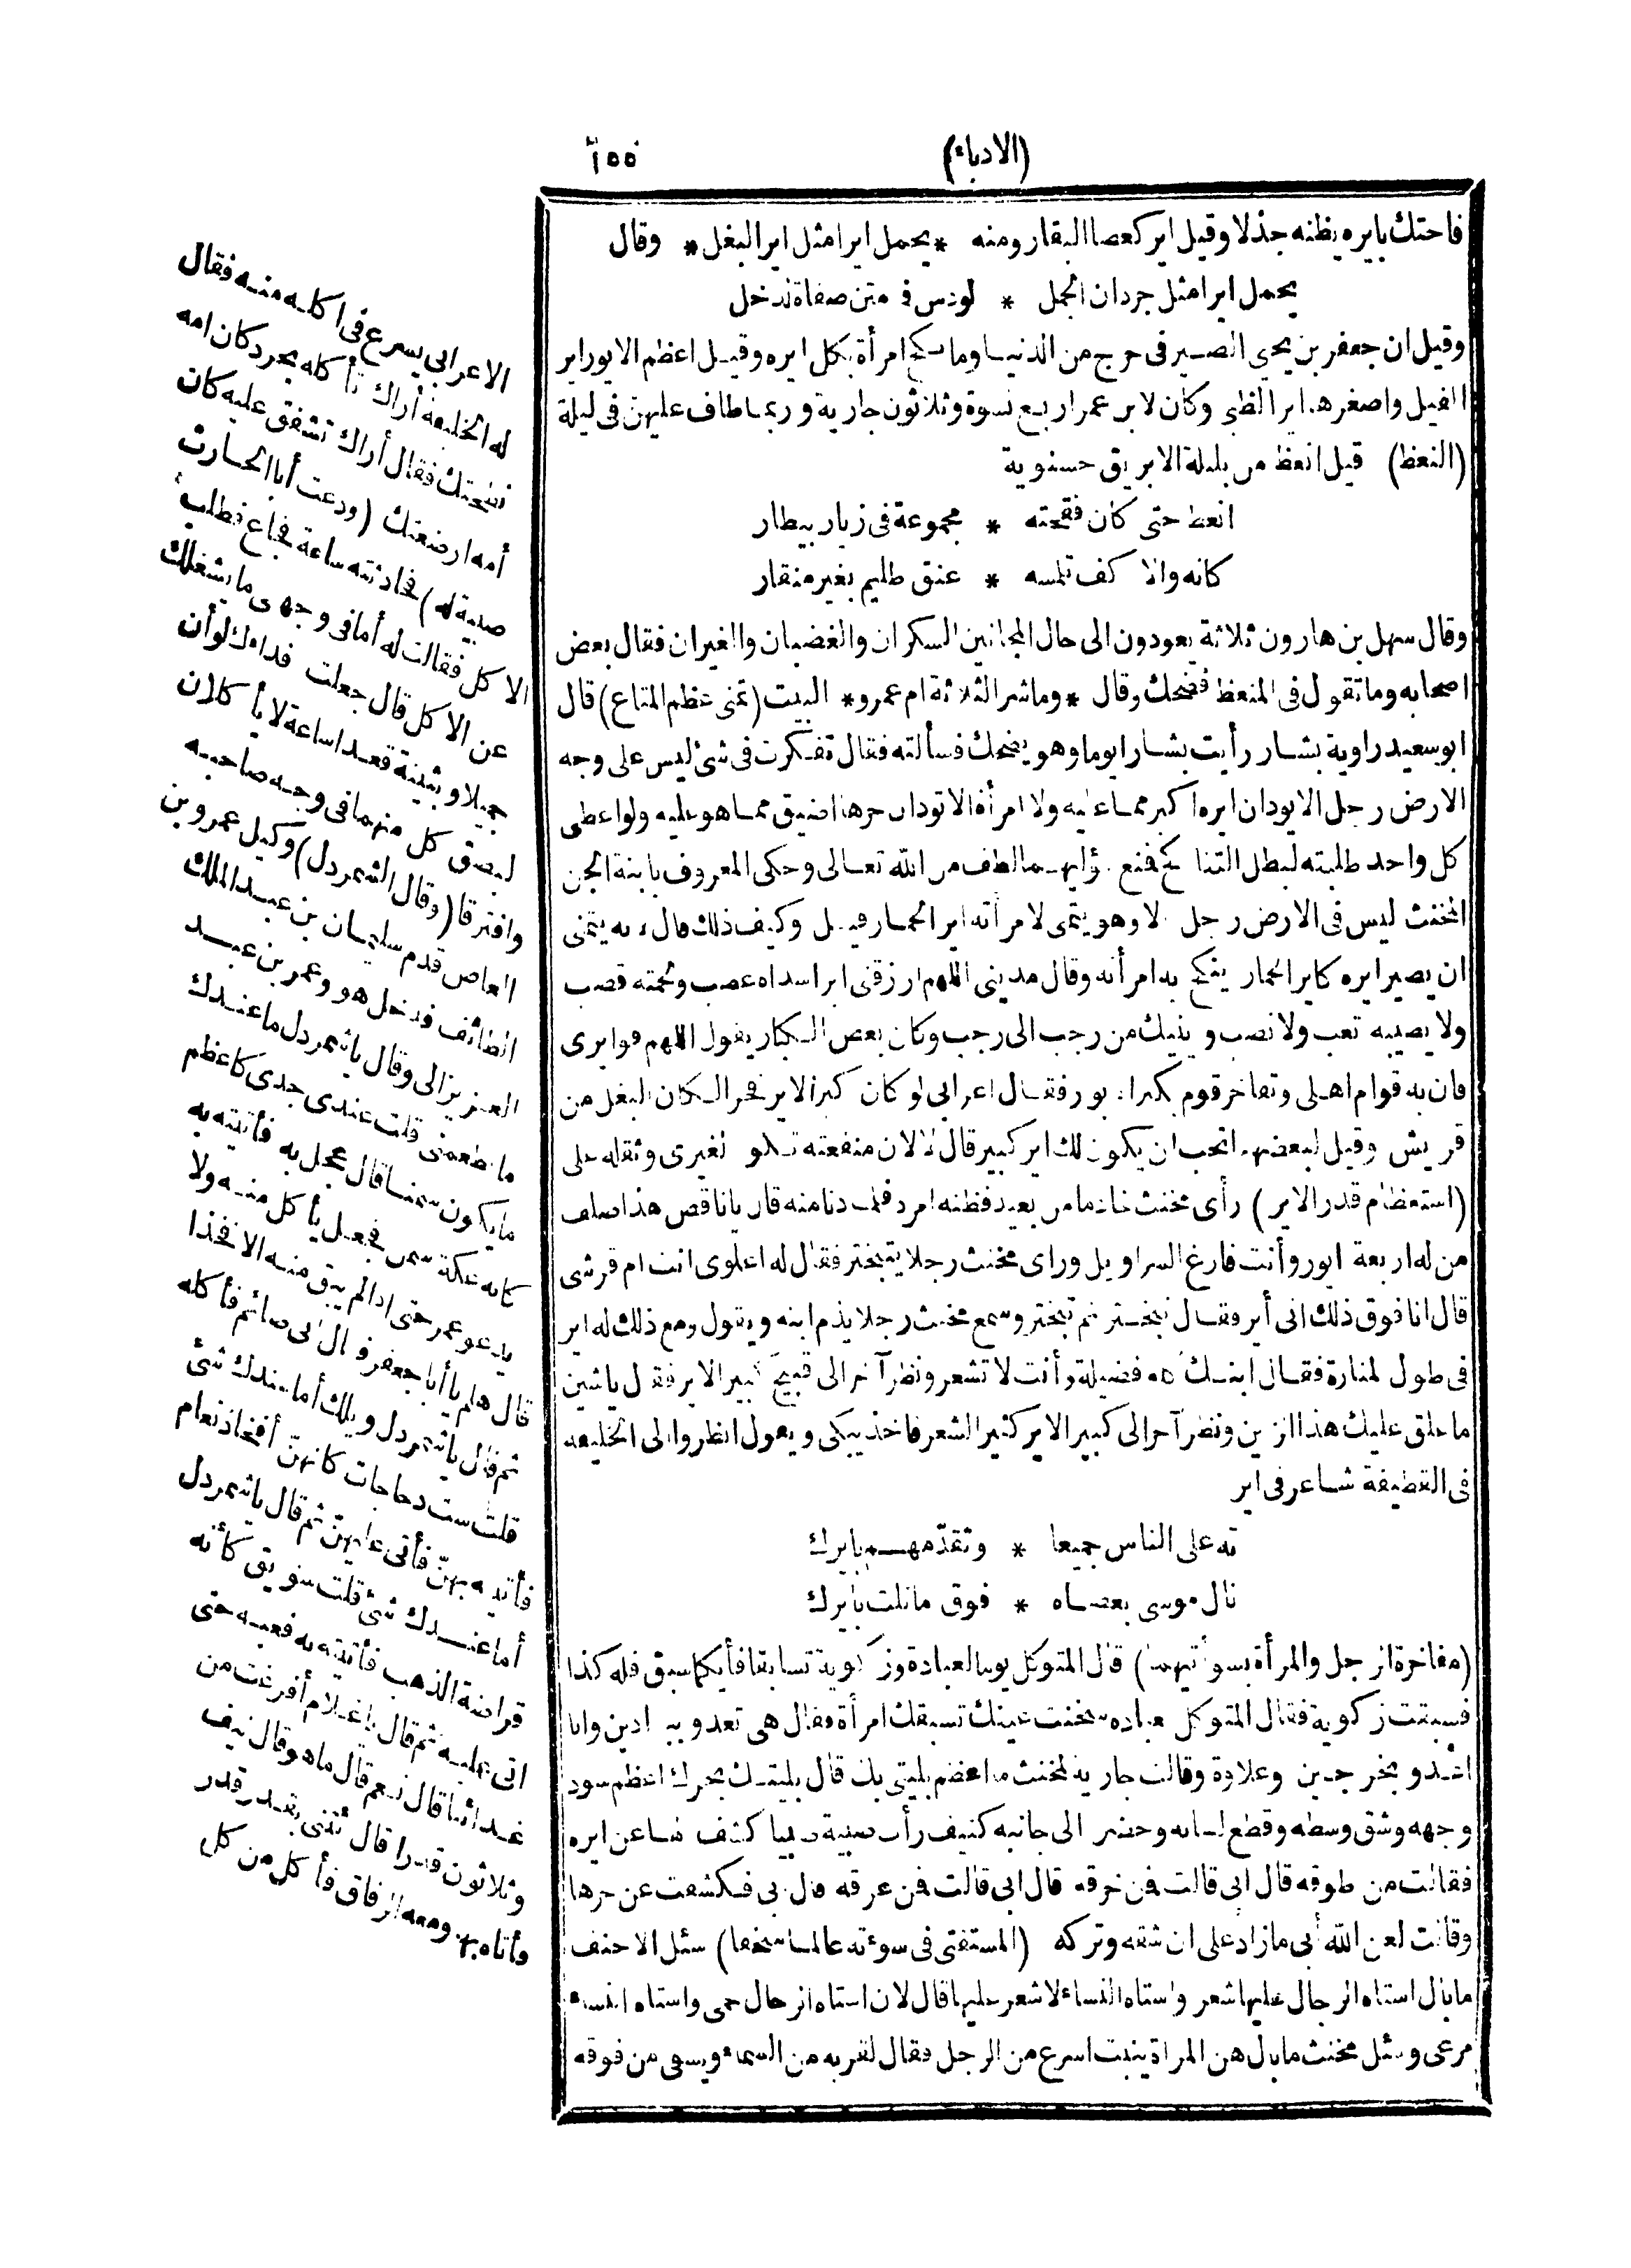 (الادباء)
٢٥٥
فاحتك بايره يظنه جذلا وقيل اير كعصا البقار ومنه * يحمل ايرا مثل اير البغل * وقال
يحمل ايرا مثل جردان الجمل * لودس فى متن صفاة لدخل
وقيل ان جعفر بن يحيى الصير فى حرج من الدنيا وما نكح امرأة بكل ايره وقيل اعظم الايور اير
الفيل واصغرها اير الظبى وكان لابر عمر اربع نسوة وثلاثون جارية وربما طاف عليهن فى ليلة
(النعظ) قيل انعظ من بلبلة الابريق حسنوية
انعظ حتى كان فقحته * مجموعة فى زيار بيطار
كانه والا كف تلمسه * عنق ظليم بغير منقار
وقال سهل بن هارون ثلاثة يعودون الى حال المجانين السكران والغضبان والغيران فقال بعض
اصحابه وما تقول فى المنعظ فضحك وقال * وما شر الثلاثة ام عمرو * البيت (تمنى عظم المتاع) قال
ابو سعيد راوية بشار رأيت بشارا يوما وهو يضحك فسألته فقال تفكرت فى شئ ليس على وجه
الارض رجل الا يود ان ايره اكبر مما عليه ولا امرأة الا تود ان حرها اضيق مما هو عليه ولو اعطى
كل واحد طلبته لبطل التناكح فمنع ايهما لطف من الله تعالى وحكى المعروف بابنة الجن
المخنث ليس فى الارض رجل الا وهو يتمنى لامرأته اير الحمار قيل وكيف ذلك قال انه يتمنى
ان يصير ايره كاير الحمار ينكح به امرأته وقال مدينى اللهم ارزقنى ايرا سداه عصب ولحمته قصب
ولا يصيبه تعب ولا نصب وينيك من رجب الى رجب وكان بعض الكبار يقول اللهم قوايرى
فان به قوام اهلى وتفاخر قوم بكبر ايور فقال اعرابى لو كان كبر الاير فخرا لكان البغل من
قريش وقيل لبعضهم اتحب ان يكون لك اير كبير قال لا لان منفعته تكون لغيرى وثقله على
(استعظام قدر الاير) رأى مخنث خادما من بعيد فظنه امرد فلما دنا منه قال يا ناقص هذا صلف
من له اربعة ايور وأنت فارغ السراويل ورأى مخنث رجلا يتبختر فقال له اعلوى انت ام قرشى
قال انا فوق ذلك انى أير فقال تبختر ثم تبختر وسمع مخنث رجلا يذم ابنه ويقول ومع ذلك له اير
فى طول المنارة فقال ابنك هذه فضيلة وأنت لا تشعر ونظر آخر الى قبيح كبير الاير فقال يا شين
ما علق عليك هذا الزين ونظر آخر الى كبير الاير كثير الشعر فاخذ يبكى ويقول انظروا الى الخليفة
فى القطيفة شاعر فى اير
ته على الناس جميعا * وتقدمهم بايرك
نال موسى بعصاه * فوق ما نلت بايرك
(مفاخرة الرجل والمرأة بسوأتيهما) قال المتوكل يوما لعبادة وزكوية تسابقا فأيكما سبق فله كذا
فسبقت زكوية فقال المتوكل عباده سخنت عينك تسبقك امرأة فقال هى تعدو بلا ادين وانا
اغدو بخرجين وعلاوة وقالت جارية لمخنث ما اعظم بليتى بك قال بليتك بحرك اعظم سود
وجهه وشق وسطه وقطع لسانه وحضر الى جانبه كنيف رأت صبية صبيا كشف لها عن ايره
فقالت من طوقه قال ابى قالت فمن خرقه قال ابى قالت فمن عرقه قال ابى فكشفت عن حرها
وقالت لعن الله أبى ما زاد على ان شقه وتركه (المستفتى فى سوءته عالما سخفا) سئل الاحنف
ما بال استاه الرجال عليها شعر واستاه النساء لا شعر عليها قال لان استاه الرجال حمى واستاه النساء
مرعى وسئل مخنث ما بال هن المرأة ينبت اسرع من الرجل فقال لقربه من السماء ويسقى من فوقه
الاعرابى يسرع فى اكله منه فقال
له الخليفة أراك تأكله بحرد كان امه
نطحتك فقال أراك تشفق عليه كان
أمه ارضعتك (ودعت أبا الحارث
صبية له) فحادثته ساعة فجاع فطلب
الاكل فقالت له أما فى وجهى ما يشغلك
عن الاكل قال جعلت فداءك لو أن
جميلا وبثينة قعدا ساعة لا يأكلان
لبصق كل منهما فى وجه صاحبه
وافترقا (وقال الشمردل) وكيل عمرو بن
العاص قدم سليمان بن عبد الملك
الطائف فدخل هو وعمر بن عبد
العزيز الى وقال يا شمردل ما عندك
ما تطعمنى قلت عندى جدى كاعظم
ما يكون سمنا قال عجل به فأتيته به
كانه عكة سمن فجعل يأكل منه ولا
يدعو عمر حتى اذا لم يبق منه الا فخذا
قال هلم يا أبا جعفر قال انى صائم فأكله
ثم قال يا شمردل ويلك أما عندك شئ
قلت ست دجاجات كانهن أفخاذ نعام
فأتيته بهن فأتى عليهن ثم قال يا شمردل
أما عندك شئ قلت سويق كأنه
قراضة الذهب فأتيته به فعبه حتى
اتى عليه ثم قال يا غلام أفرغت من
غدائنا قال نعم قال ما هو قال نيف
وثلاثون قدرا قال ائتنى بقدر قدر
فأتاه بها ومعه الرقاق فأكل من كل